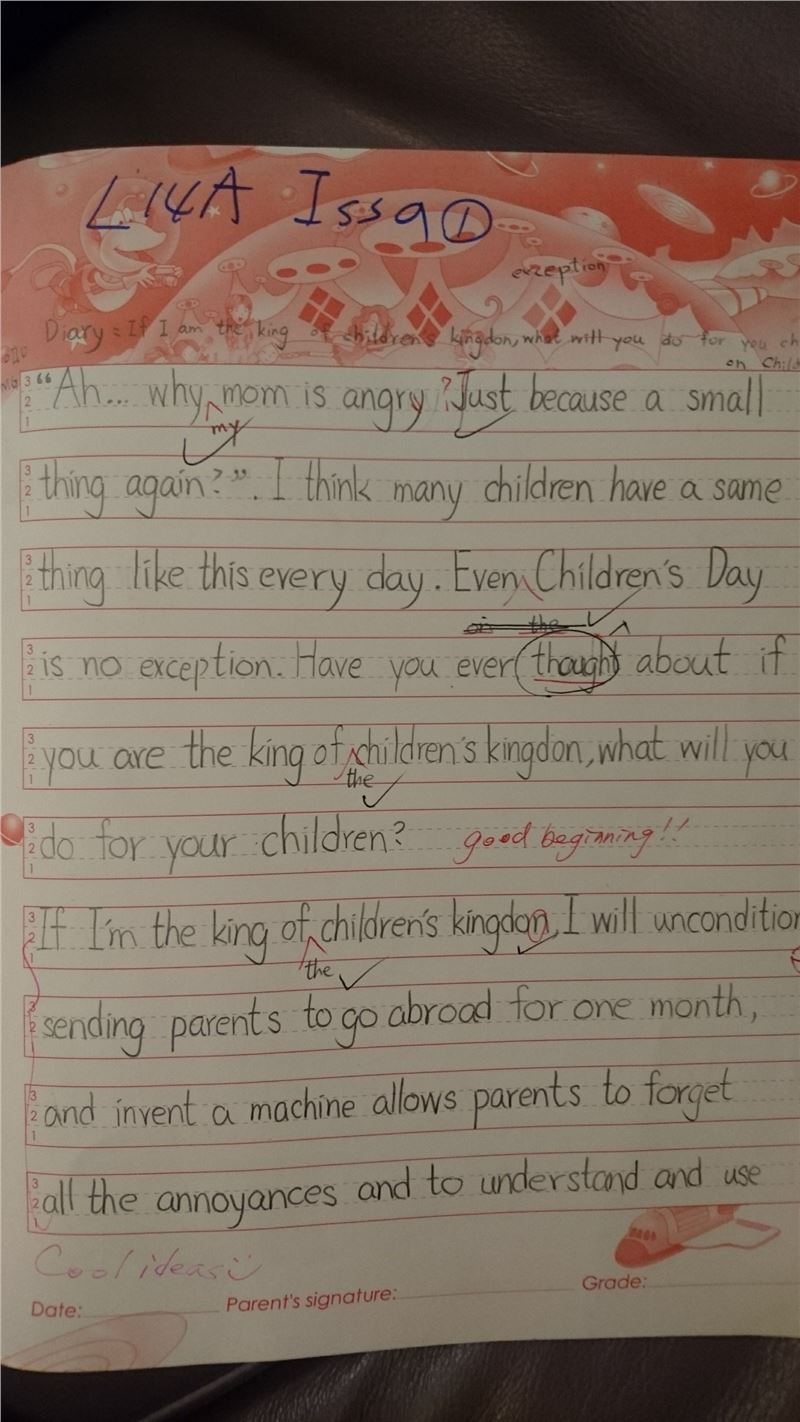 L14A Issa①
exception
Diary: If I am the king of children's kingdon, what will you do for you ch
on Child
"Ah... why mom is angry? Just because a small
my
thing again?". I think many children have a same
thing like this every day. Even Children's Day
on the
is no exception. Have you ever thought about if
you are the king of children's kingdon, what will you
the
do for your children? good beginning!!
If I'm the king of children's kingdon, I will uncondition
the
sending parents to go abroad for one month,
and invent a machine allows parents to forget
all the annoyances and to understand and use
Cool ideas
Date: Parent's signature: Grade: